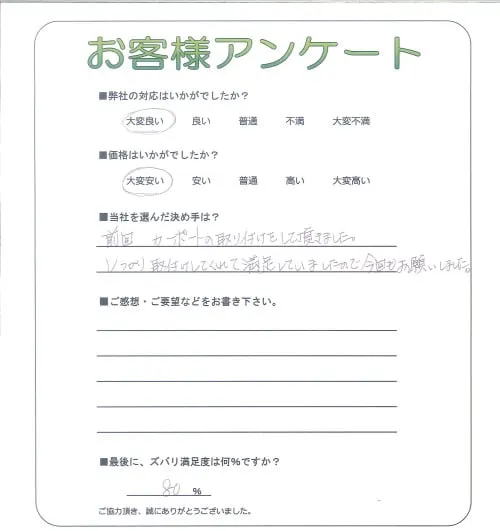 お客様アンケート
■弊社の対応はいかがでしたか？
大変良い 良い 普通 不満 大変不満
■価格はいかがでしたか？
大変安い 安い 普通 高い 大変高い
■当社を選んだ決め手は？
前回 カーポートの取り付けをして頂きました。
しっかり取付けしてくれて満足していましたので今回もお願いしました。
■ご感想・ご要望などをお書き下さい。
■最後に、ズバリ満足度は何％ですか？
80 ％
ご協力頂き、誠にありがとうございました。